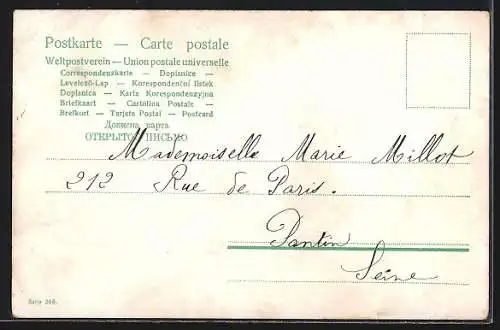 Postkarte — Carte postale
Weltpostverein — Union postale universelle
Correspondenzkarte — Dopisnice —
Levelező-Lap — Korespondenční lístek
Dopisnica — Karta Korespondenzyjna
Briefkaart — Cartolina Postale —
Brefkort — Tarjeta Postal — Postcard
Дописна карта
ОТКРЫТОЕ ПИСЬМО
Mademoiselle Marie Millot
212 Rue de Paris.
Pantin
Seine